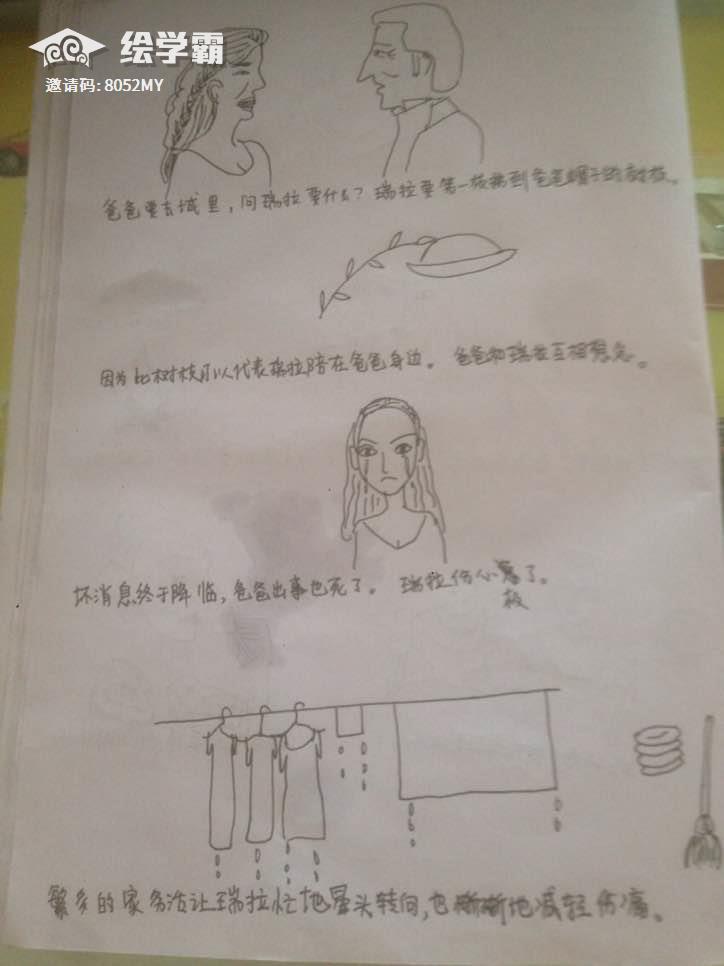 绘学霸
邀请码: 8052MY
爸爸要去城里，问瑞拉要什么？瑞拉要第一枝拂到爸爸帽子的树枝。
因为此树枝可以代表瑞拉陪在爸爸身边。爸爸和瑞拉互相想念。
坏消息终于降临，爸爸出事也死了。瑞拉伤心了。
极
繁多的家务活让瑞拉忙地晕头转向，也渐渐地减轻伤痛。